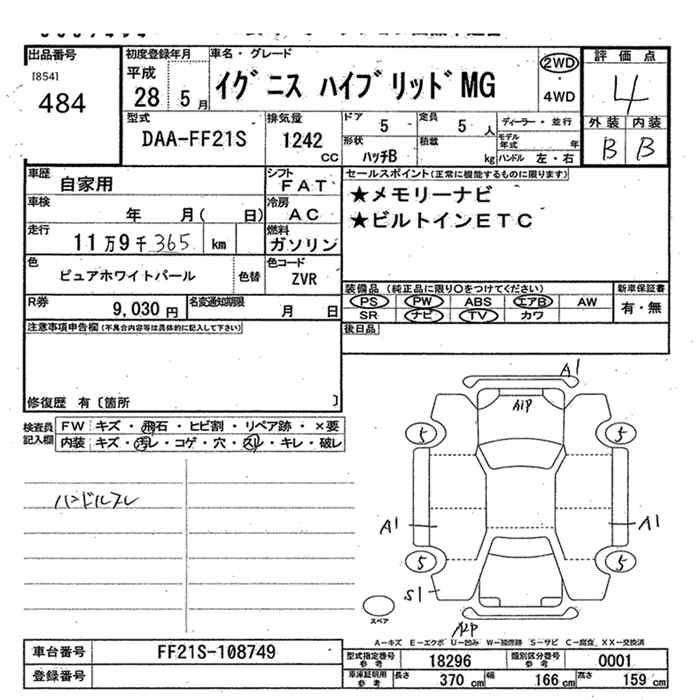 出品番号
[854]
484
初度登録年月
平成
28 5月
車名・グレード
イグニス ハイブリッド MG
2WD
4WD
評価点
4
外装 内装
B B
型式
DAA-FF21S
排気量
1242
cc
ドア 5
定員 5 人
ディーラー・並行
モデル年式 年
形状 ハッチB
積載 kg
ハンドル 左・右
車歴
自家用
シフト
FAT
セールスポイント(正常に機能するものに限ります)
★メモリーナビ
★ビルトインETC
車検
年 月( 日)
冷房
AC
走行
11万9千365 km
燃料
ガソリン
色
ピュアホワイトパール
色替
色コード
ZVR
装備品(純正品に限り○をつけてください)
新車保証書
PS PW ABS エアB AW
SR ナビ TV カワ
有・無
R券
9,030円
名変通知期限
月 日
後日品
注意事項申告欄(不具合内容等は具体的に記入して下さい)
修復歴 有〔箇所 〕
検査員
記入欄
FW キズ・飛石・ヒビ割・リペア跡・×要
内装 キズ・汚レ・コゲ・穴・スレ・キレ・破レ
ハンドルスレ
A1
A1P
5 5
A1 A1
5 5
S1
スペア
A−キズ E−エクボ U−凹み W−補修跡 S−サビ C−腐食 XX−交換済
車台番号
FF21S-108749
登録番号
型式指定番号
参考
18296
類別区分番号
参考
0001
車庫証明用
参考
長さ 370 cm
幅 166 cm
高さ 159 cm